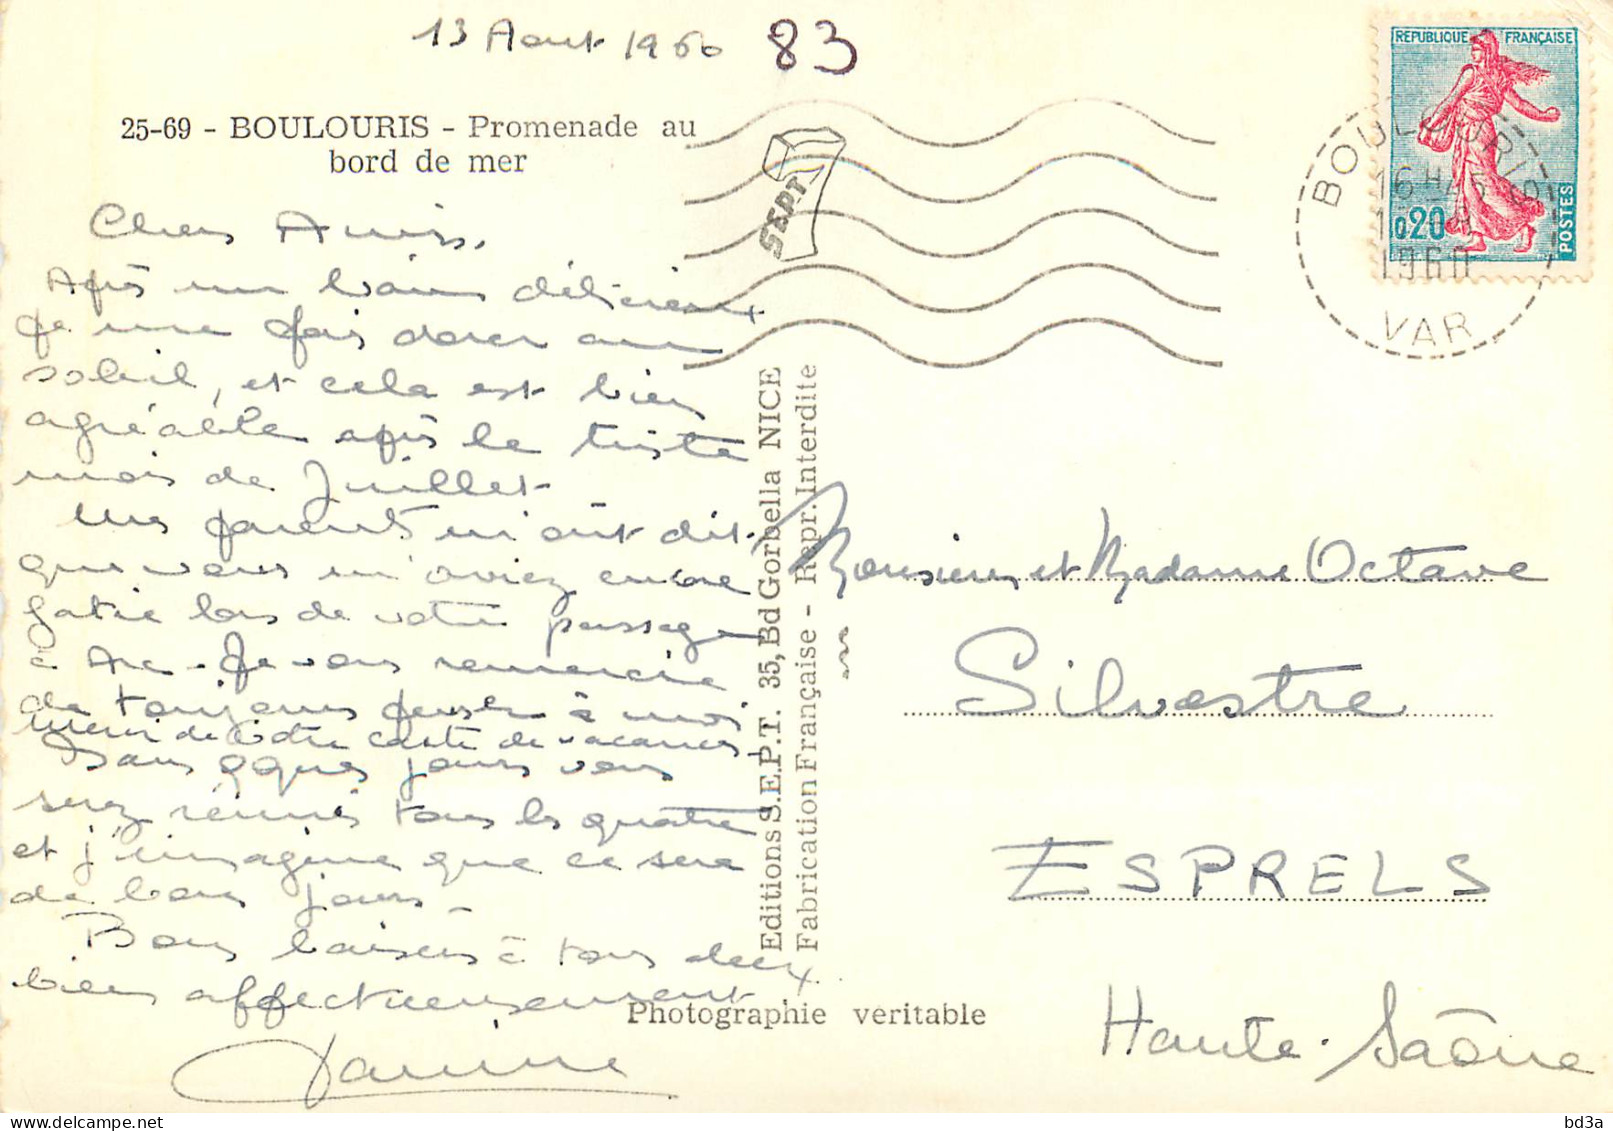 13 Aout 1960 83
25-69 - BOULOURIS - Promenade au
bord de mer
Chers Amis,
Après un bain délicieux
je me fais dorer au
soleil, et cela est bien
agréable après le triste
mois de Juillet.
Mes parents m'ont dit
que vous m'aviez encore
gatée lors de votre passage
à Arc. Je vous remercie
de toujours penser à moi
merci de votre carte de vacances.
Dans qques jours vous
serez réunis tous les quatre
et j'imagine que ce sera
de bons jours.
Bons baisers à tous deux.
bien affectueusement
Janine
SEPT
Editions S.E.P.T. 35, Bd Gorbella NICE
Fabrication Française - Repr. Interdite
Photographie véritable
REPUBLIQUE FRANÇAISE
0,20
POSTES
BOULOURIS
16 H45
1960
VAR
Monsieur et Madame Octave
Silvestre
ESPRELS
Haute-Saône
bd3a